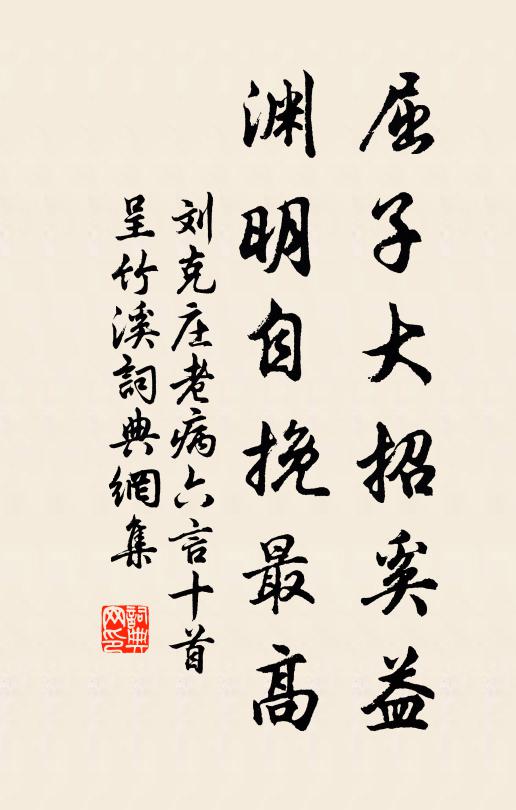 屈子大招奚益
渊明自挽最高
刘克庄老病六言十首
呈竹溪詞典網集
詞典
网印